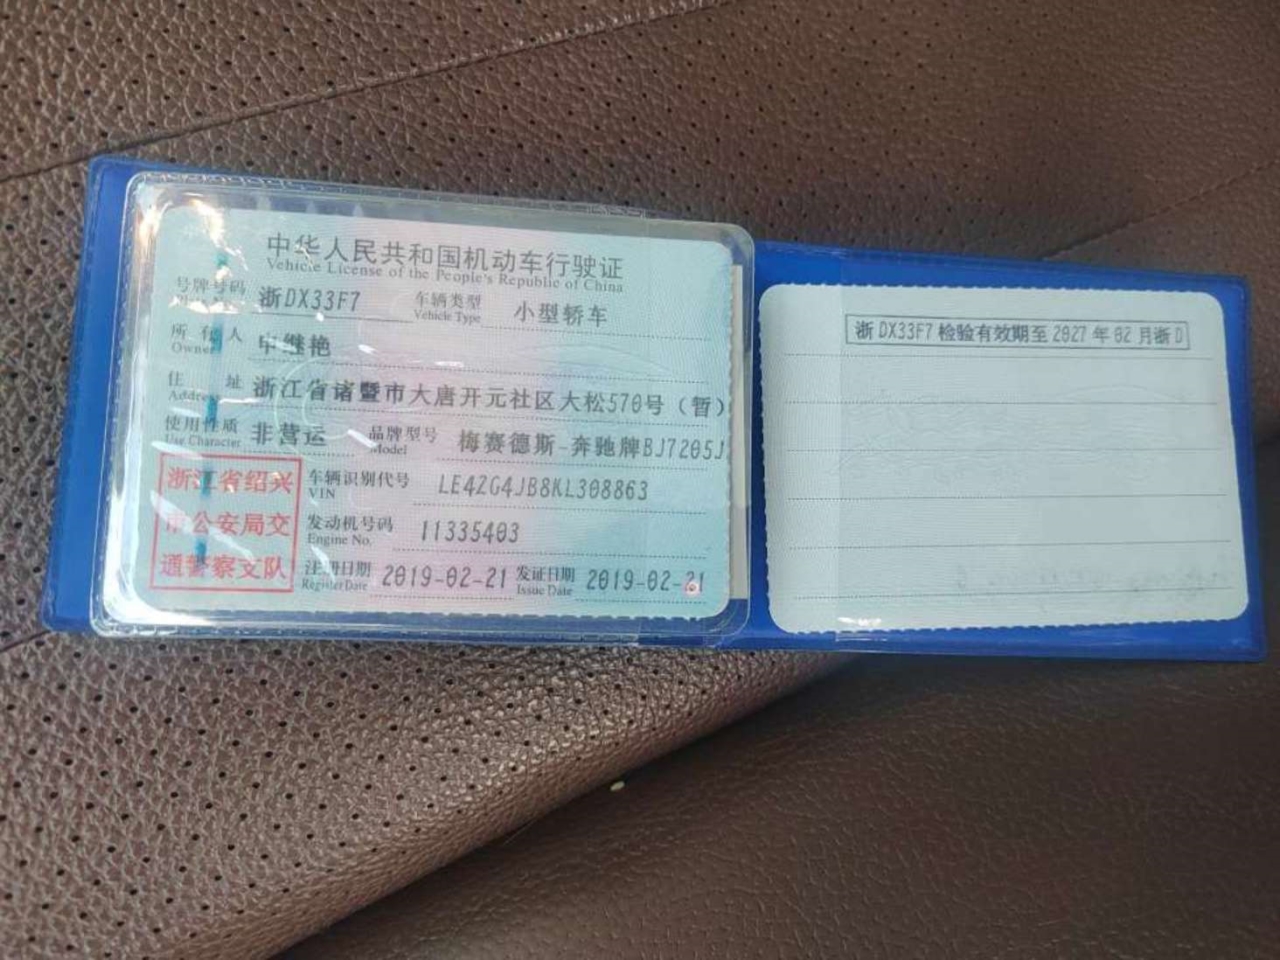 中华人民共和国机动车行驶证
Vehicle License of the People's Republic of China
号牌号码 浙DX33F7 车辆类型 小型轿车
Vehicle Type
所有人 申继艳
Owner
住址 浙江省诸暨市大唐开元社区大松570号（暂）
Address
使用性质 非营运 品牌型号 梅赛德斯-奔驰牌BJ7205J
Use Character Model
浙江省绍兴
市公安局交
通警察支队
车辆识别代号 LE4ZG4JB8KL308863
VIN
发动机号码 11335403
Engine No.
注册日期 2019-02-21 发证日期 2019-02-21
Register Date Issue Date
浙DX33F7检验有效期至2027年02月浙D